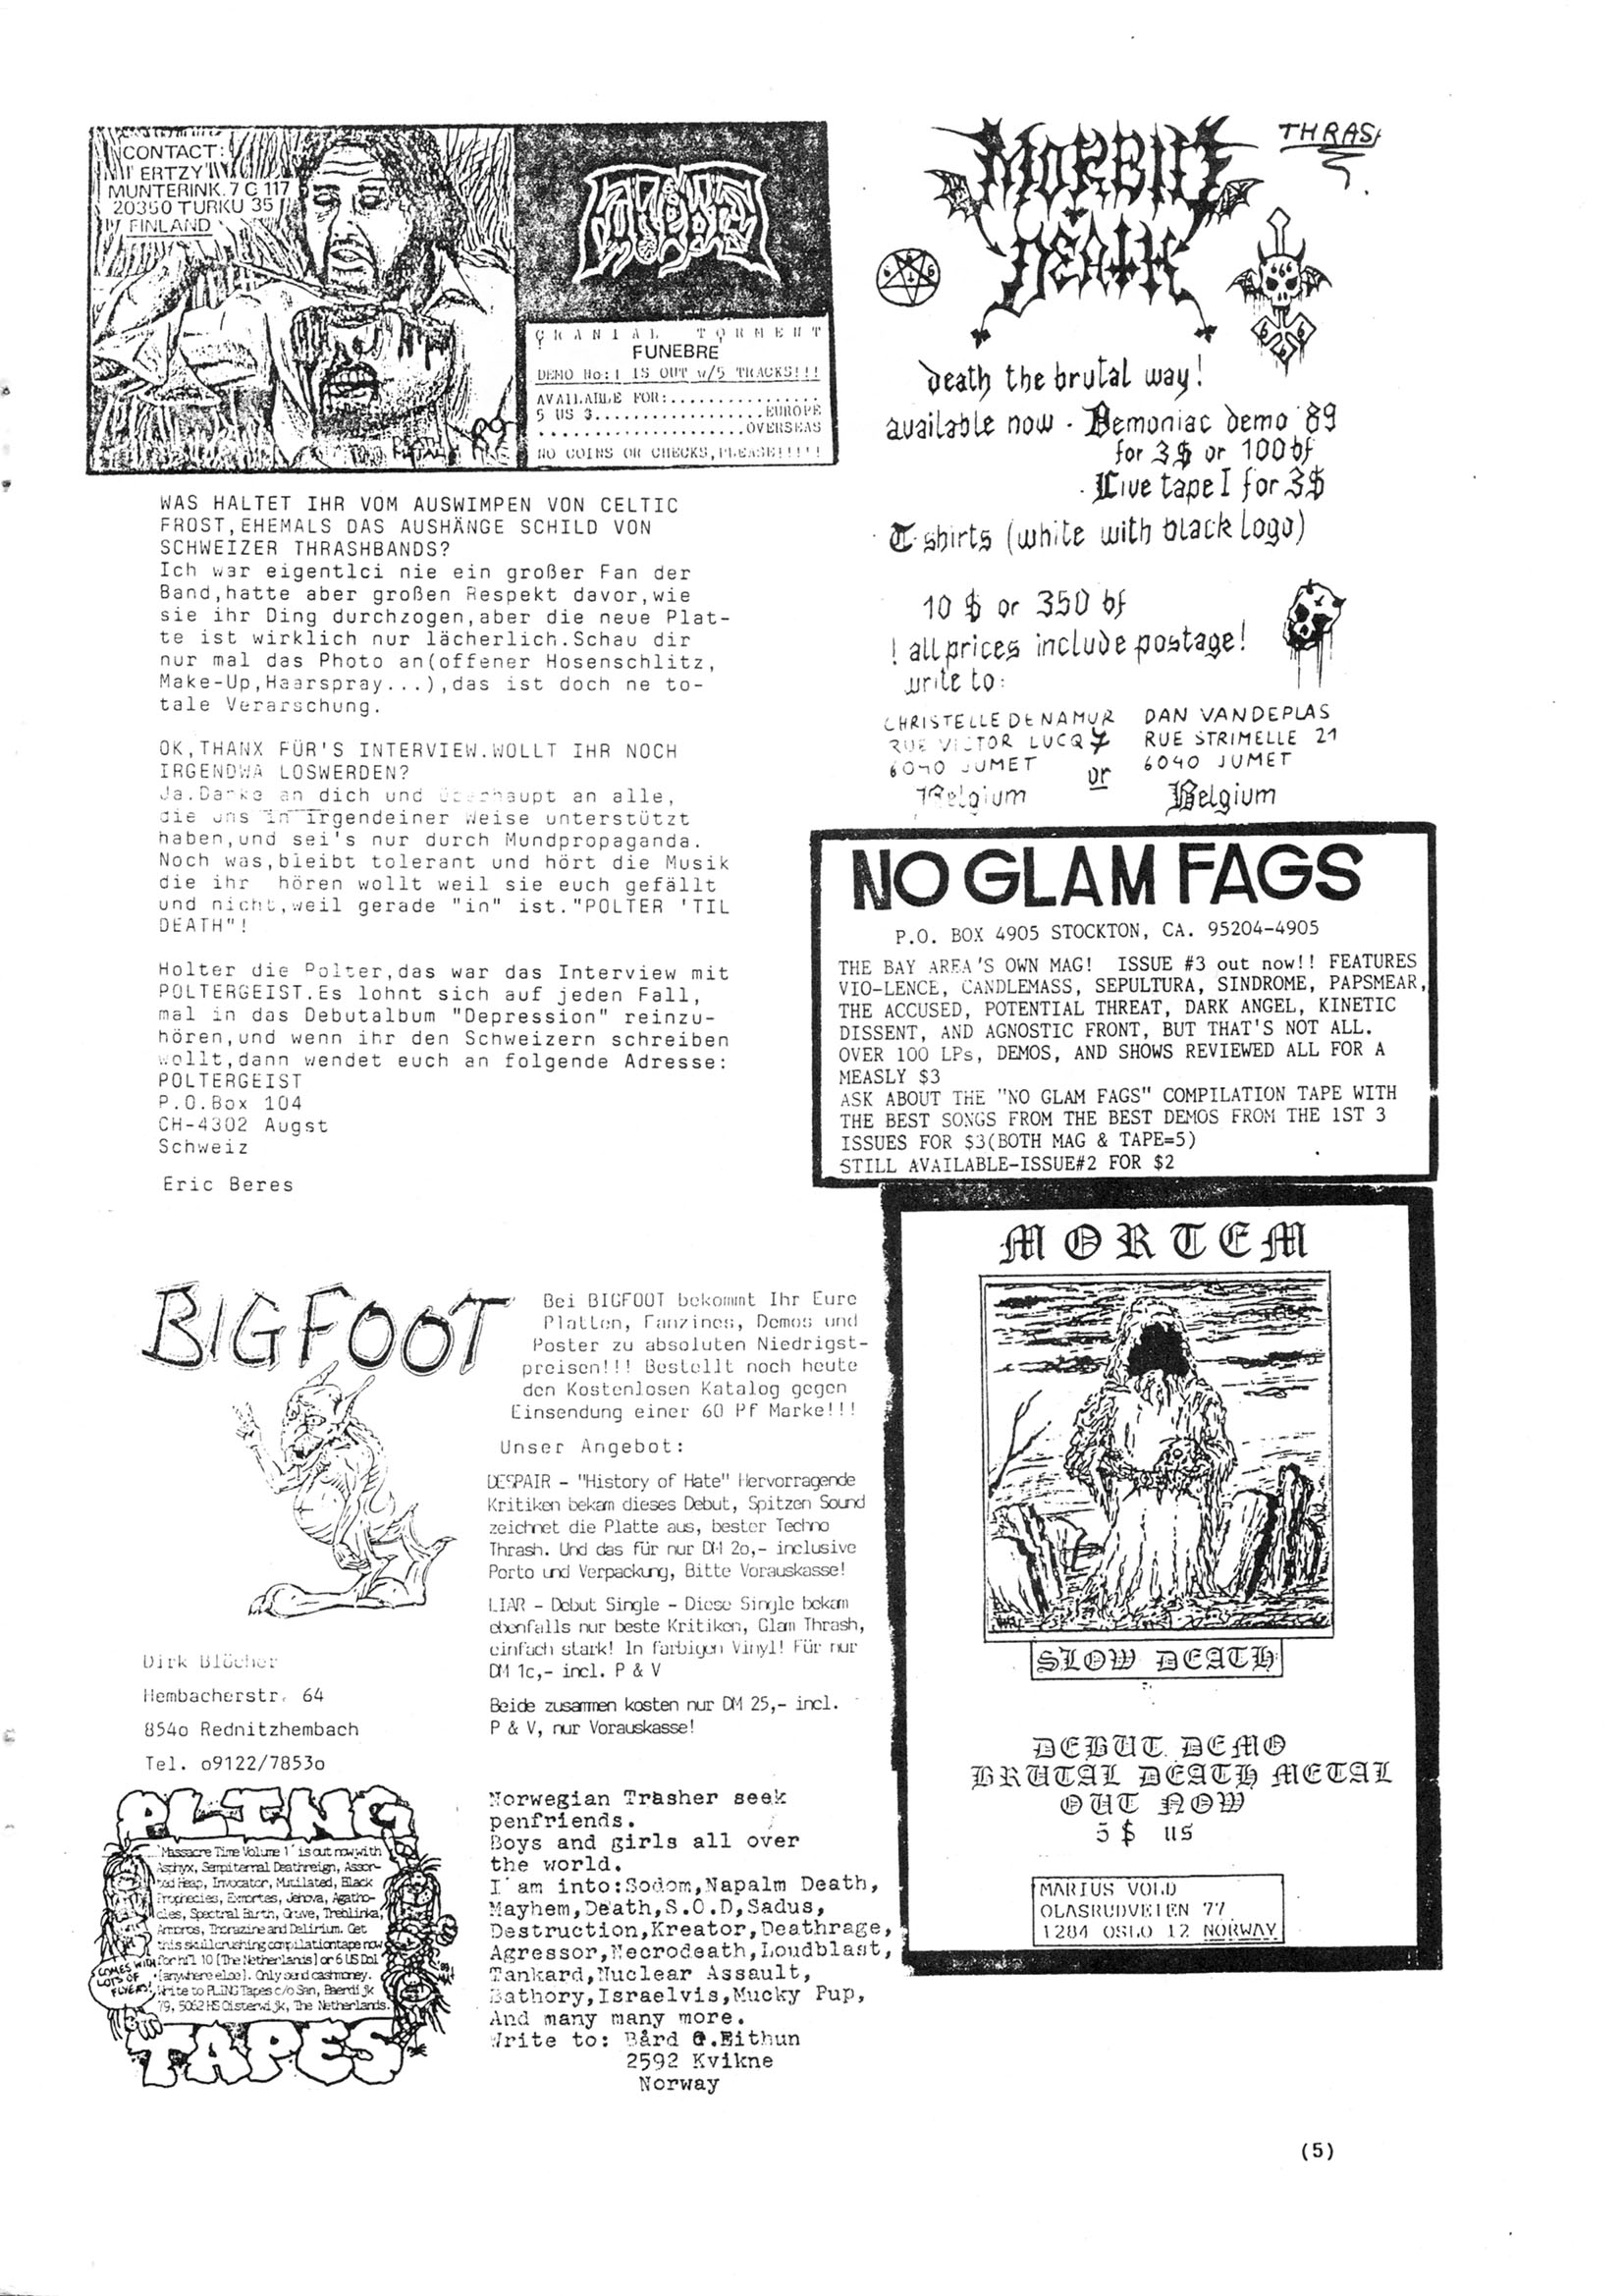 CONTACT:
ERTZY
MUNTERINK. 7 C 117
20350 TURKU 35
FINLAND
FUNEBRE
CRANIAL TORMENT
FUNEBRE
DEMO No:1 IS OUT w/5 TRACKS!!!
AVAILABLE FOR:................
5 US $...................EUROPE
.......................OVERSEAS
NO COINS OR CHECKS,PLEASE!!!!!
WAS HALTET IHR VOM AUSWIMPEN VON CELTIC
FROST,EHEMALS DAS AUSHÄNGE SCHILD VON
SCHWEIZER THRASHBANDS?
Ich war eigentlci nie ein großer Fan der
Band,hatte aber großen Respekt davor,wie
sie ihr Ding durchzogen,aber die neue Plat-
te ist wirklich nur lächerlich.Schau dir
nur mal das Photo an(offener Hosenschlitz,
Make-Up,Haarspray...),das ist doch ne to-
tale Verarschung.
OK,THANX FÜR'S INTERVIEW.WOLLT IHR NOCH
IRGENDWA LOSWERDEN?
Ja.Danke an dich und überhaupt an alle,
die uns in irgendeiner Weise unterstützt
haben,und sei's nur durch Mundpropaganda.
Noch was,bleibt tolerant und hört die Musik
die ihr hören wollt weil sie euch gefällt
und nicht,weil gerade "in" ist."POLTER 'TIL
DEATH"!
Holter die Polter,das war das Interview mit
POLTERGEIST.Es lohnt sich auf jeden Fall,
mal in das Debutalbum "Depression" reinzu-
hören,und wenn ihr den Schweizern schreiben
wollt,dann wendet euch an folgende Adresse:
POLTERGEIST
P.O.Box 104
CH-4302 Augst
Schweiz
Eric Beres
THRASH
MORBID
DEATH
death the brutal way!
available now - Demoniac demo '89
for 3$ or 100bf
- Live tape I for 3$
- T-shirts (white with black logo)
10 $ or 350 bf
! all prices include postage!
write to:
CHRISTELLE DENAMUR
RUE VICTOR LUCQ 7
6040 JUMET
Belgium
or
DAN VANDEPLAS
RUE STRIMELLE 21
6040 JUMET
Belgium
NO GLAM FAGS
P.O. BOX 4905 STOCKTON, CA. 95204-4905
THE BAY AREA'S OWN MAG! ISSUE #3 out now!! FEATURES
VIO-LENCE, CANDLEMASS, SEPULTURA, SINDROME, PAPSMEAR,
THE ACCUSED, POTENTIAL THREAT, DARK ANGEL, KINETIC
DISSENT, AND AGNOSTIC FRONT, BUT THAT'S NOT ALL.
OVER 100 LPs, DEMOS, AND SHOWS REVIEWED ALL FOR A
MEASLY $3
ASK ABOUT THE "NO GLAM FAGS" COMPILATION TAPE WITH
THE BEST SONGS FROM THE BEST DEMOS FROM THE 1ST 3
ISSUES FOR $3(BOTH MAG & TAPE=5)
STILL AVAILABLE-ISSUE#2 FOR $2
BIGFOOT
Bei BIGFOOT bekommt Ihr Eure
Platten, Fanzines, Demos und
Poster zu absoluten Niedrigst-
preisen!!! Bestellt noch heute
den Kostenlosen Katalog gegen
Einsendung einer 60 Pf Marke!!!
Unser Angebot:
DESPAIR - "History of Hate" Hervorragende
Kritiken bekam dieses Debut, Spitzen Sound
zeichnet die Platte aus, bester Techno
Thrash. Und das für nur DM 2o,- inclusive
Porto und Verpackung, Bitte Vorauskasse!
LIAR - Debut Single - Diese Single bekam
ebenfalls nur beste Kritiken, Glam Thrash,
einfach stark! In farbigen Vinyl! Für nur
DM 1c,- incl. P & V
Beide zusammen kosten nur DM 25,- incl.
P & V, nur Vorauskasse!
Dirk Blücher
Hembacherstr. 64
854o Rednitzhembach
Tel. o9122/7853o
MORTEM
SLOW DEATH
DEBUT DEMO
BRUTAL DEATH METAL
OUT NOW
5 $ us
MARIUS VOLD
OLASRUDVEIEN 77
1284 OSLO 12 NORWAY
PLING
'Massacre Time Volume 1' is out now with
Asphyx, Sempiternal Deathreign, Assor-
ted Heap, Invocator, Mutilated, Black
Prophecies, Exmortes, Jehova, Agatho-
cles, Spectral Birth, Grave, Treblinka,
Amoros, Thorazine and Delirium. Get
this skullcrushing compilationtape now
for hfl 10 [The Netherlands] or 6 US Dol
[anywhere else]. Only send cashmoney.
Write to PLING Tapes c/o San, Baerdijk
79, 5062 HS Oisterwijk, The Netherlands.
COMES WITH
LOTS OF
FLYERS!
TAPES
Norwegian Trasher seek
penfriends.
Boys and girls all over
the world.
I'am into:Sodom,Napalm Death,
Mayhem,Death,S.O.D,Sadus,
Destruction,Kreator,Deathrage,
Agressor,Necrodeath,Loudblast,
Tankard,Nuclear Assault,
Bathory,Israelvis,Mucky Pup,
And many many more.
Write to: Bård G.Eithun
2592 Kvikne
Norway
(5)